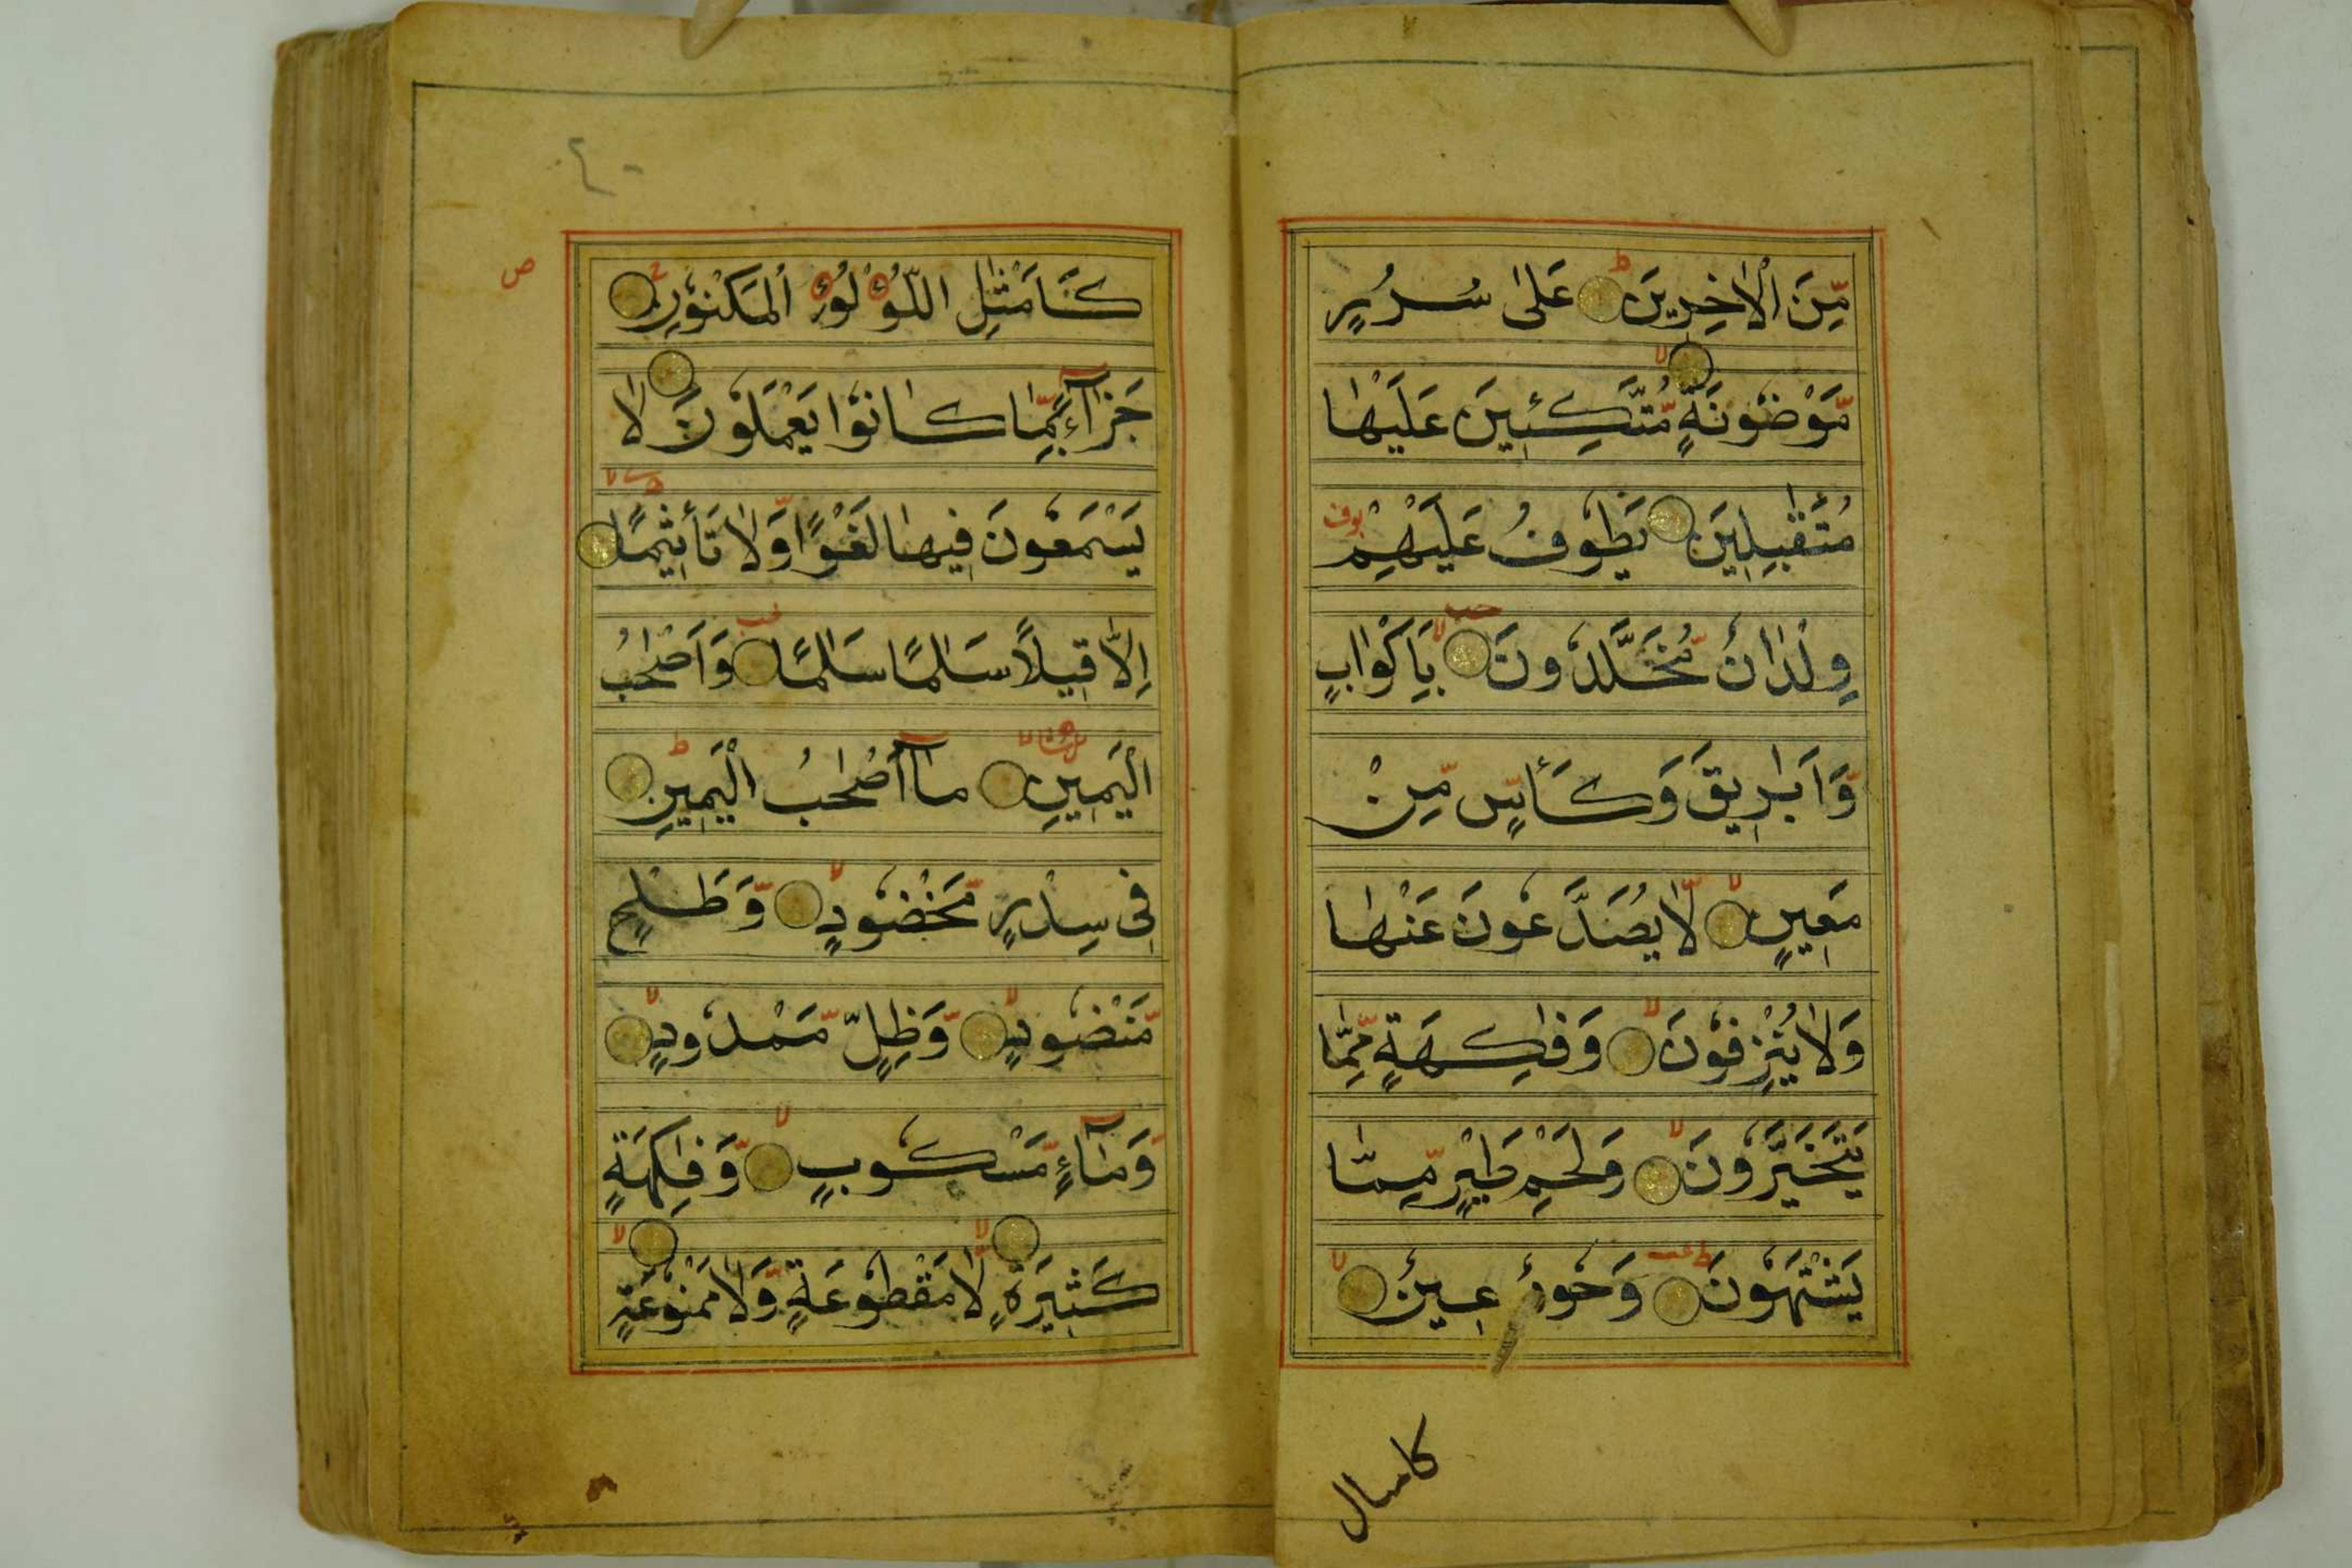 مِّنَ الْاٰخِرِينَ عَلٰى سُرُرٍ
مَّوْضُونَةٍ مُّتَّكِـِٕينَ عَلَيْهَا
مُتَقٰبِلِينَ يَطُوفُ عَلَيْهِمْ
وِلْدَانٌ مُّخَلَّدُونَ بِاَكْوَابٍ
وَّاَبَارِيقَ وَكَأْسٍ مِّنْ
مَعِينٍ لَّا يُصَدَّعُونَ عَنْهَا
وَلَا يُنْزِفُونَ وَفَاكِهَةٍ مِّمَّا
يَتَخَيَّرُونَ وَلَحْمِ طَيْرٍ مِّمَّا
يَشْتَهُونَ وَحُورٌ عِينٌ
كامثال
٤٠
ص
كَاَمْثَالِ اللُّؤْلُؤِ الْمَكْنُونِ
جَزَآءًۢ بِمَا كَانُوا يَعْمَلُونَ لَا
يَسْمَعُونَ فِيهَا لَغْوًا وَّلَا تَأْثِيمًا
اِلَّا قِيلًا سَلَامًا سَلَامًا وَاَصْحٰبُ
الْيَمِينِ مَآ اَصْحٰبُ الْيَمِينِ
فِى سِدْرٍ مَّخْضُودٍ وَّطَلْحٍ
مَّنْضُودٍ وَّظِلٍّ مَّمْدُودٍ
وَّمَآءٍ مَّسْكُوبٍ وَّفَاكِهَةٍ
كَثِيرَةٍ لَّا مَقْطُوعَةٍ وَّلَا مَمْنُوعَةٍ